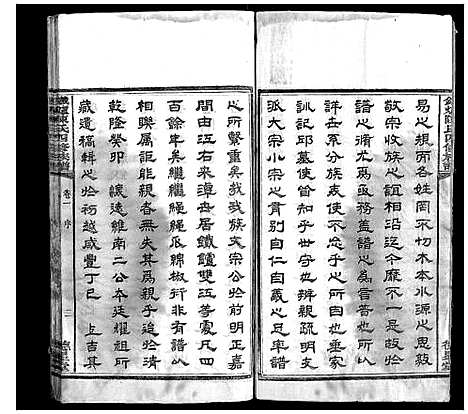 易之規而各姓罔不切木本水源之思敦
敬宗收族之誼相沿迄今靡不一是故於
譜之脩尤爲亟務蓋譜之爲言普也所以
詳世系分族表使不忘乎之所自出垂家
訓記邱墓使首知乎世守也辨親疏明支
派大宗小宗之貫别自仁自義之尼年譜
之所繫重矣哉我族大宗公於前明正嘉
間由江右來潭世居鐵爐雙江善處凡四
百餘年矣繼繼繩繩瓜綿椒衍非有譜以
相聯屬詎能親親者無失其爲親乎追於清
乾隆癸卯 謨遠維南二公弁廷耀祖所
藏遺稿輯之於初越咸豐丁巳 占吉其
卷一 序
三